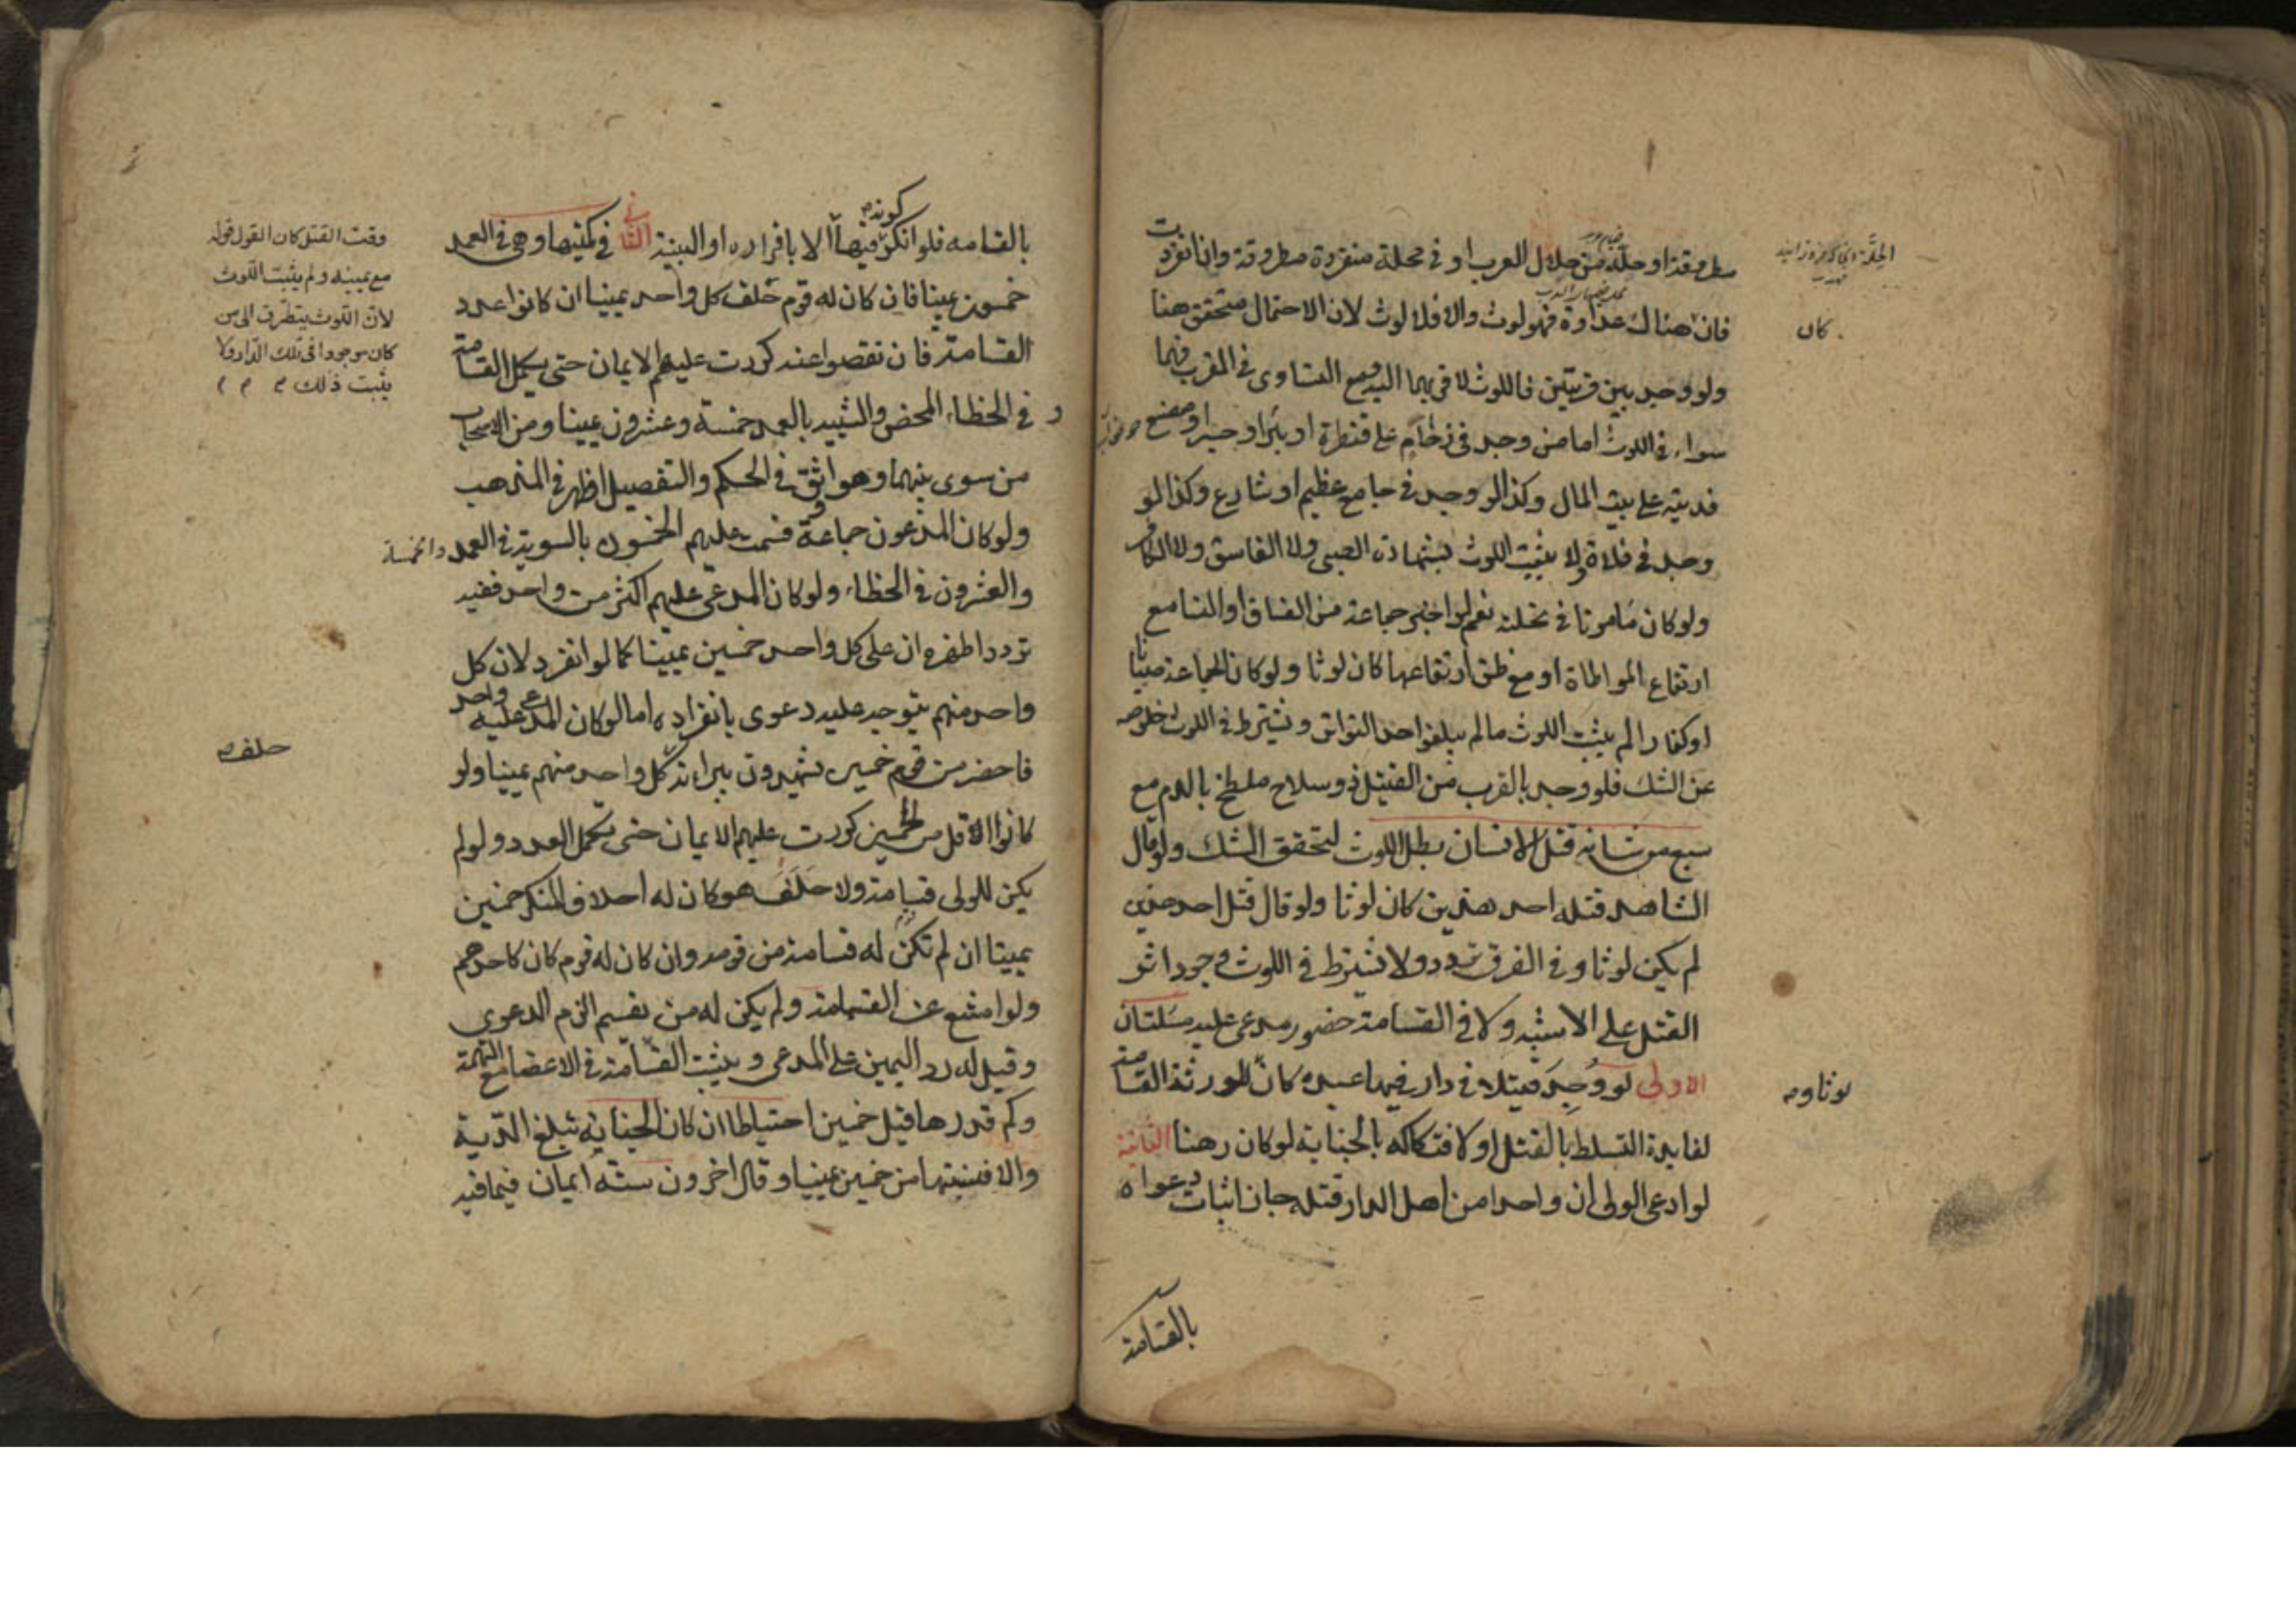 مطروقة او حلة من حلال العرب او في محلة منفردة مطروقة وان انفردت
فان هناك عداوة فهو لوث والا فلا لوث لان الاحتمال متحقق هنا
ولو وجد بين قريتين فاللوث لاقربهما اليه ومع التساوى في القرب فهما
سواء في اللوث اما من وجد في زحام على قنطرة او بئر او جسر او مصنع
فديته على بيت المال وكذا لو وجد في جامع عظيم او شارع وكذا لو
وجد في فلاة ولا يثبت اللوث بشهادة الصبى ولا الفاسق ولا الكافر
ولو كان مامونا في نحلته نعم لو اخبر جماعة من الفساق او النسا مع
ارتفاع المواطاة او مع ظن ارتفاعها كان لوثا ولو كان الجماعة صبيانا
او كفارا لم يثبت اللوث ما لم يبلغوا حد التواتر ويشترط في اللوث خلوصه
عن الشك فلو وجد بالقرب من القتيل ذو سلاح ملطخ بالدم مع
سبع من شانه قتل الانسان بطل اللوث لتحقق الشك ولو قال
الشاهد قتله احد هذين كان لوثا ولو قال قتل احد هذين
لم يكن لوثا وفي الفرق تردد ولا يشترط في اللوث وجود اثر
القتل على الاشبه ولا في القسامة حضور مدعى عليه مسلتان
الاولى لو وُجِدَ قتيلا في دار فيها عبده كان للورثة القسامة
لفايدة التسلط بالقتل او لافتكاكه بالجناية لو كان رهنا الثانية
لو ادعى الولى ان واحدا من اهل الدار قتله جاز اثبات دعواه
بالقسامة
كان
لوثا وم
بالقسامه فلو انكر كونه فيها الا باقراره او البينة الثانى في كميتها وهى في العمد
خمسون يمينا فان كان له قوم حلف كل واحد يمينا ان كانوا عدد
القسامة فان نقصوا عنه كررت عليهم الايمان حتى يكمل القسامة
و في الخطاء المحض والشبيه بالعمد خمسة وعشرون يمينا ومن الاصحاب
من سوى بينهما وهو اوثق في الحكم والتفصيل اظهر في المذهب
ولو كان المدعون جماعة قسمت عليهم الخمسون بالسوية في العمد والخمسة
والعشرون في الخطاء ولو كان المدعى عليهم اكثر من واحد ففيه
تردد اظهره ان على كل واحد خمسين يمينا كما لو انفرد لان كل
واحد منهم يتوجه عليه دعوى بانفراده اما لو كان المدعى عليه واحد
فاحضر من قومه خمسين يشهدون ببراءته كل واحد منهم يمينا ولو
كانوا الاقل من الخمسين كررت عليهم الايمان حتى يكمل العدد ولو لم
يكن للولى قسامة ولا حلف هو كان له احلاف المنكر خمسين
يمينا ان لم تكن له قسامة من قومه وان كان له قوم كان كاحدهم
ولو امتنع عن القسامة ولم يكن له من يقسم الزم الدعوى
وقيل له رد اليمين على المدعى ويثبت القسامة في الاعضا مع التهمة
وكم قدرها قيل خمسين احتياطا ان كان الجناية تبلغ الدية
والا فنسبتها من خمسين يمينا وقال اخرون ستة ايمان فيما فيه
وقت القتل كان القول قوله
مع يمينه ولم يثبت اللوث
لان اللوث يتطرق الى من
كان موجودا في تلك الدار ولا
يثبت ذلك
حلف